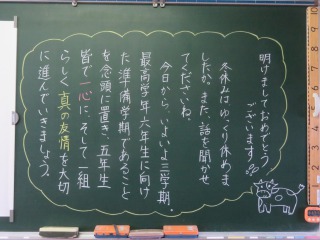 明けましておめでとう
ございます!!
冬休みはゆっくり休めま
したか。また、話を聞かせ
てくださいね。
今日から、いよいよ三学期。
最高学年六年生に向け
た準備学期であること
を念頭に置き、五年生
皆で一心に、そして一組
らしく真の友情を大切
に進んでいきましょう。